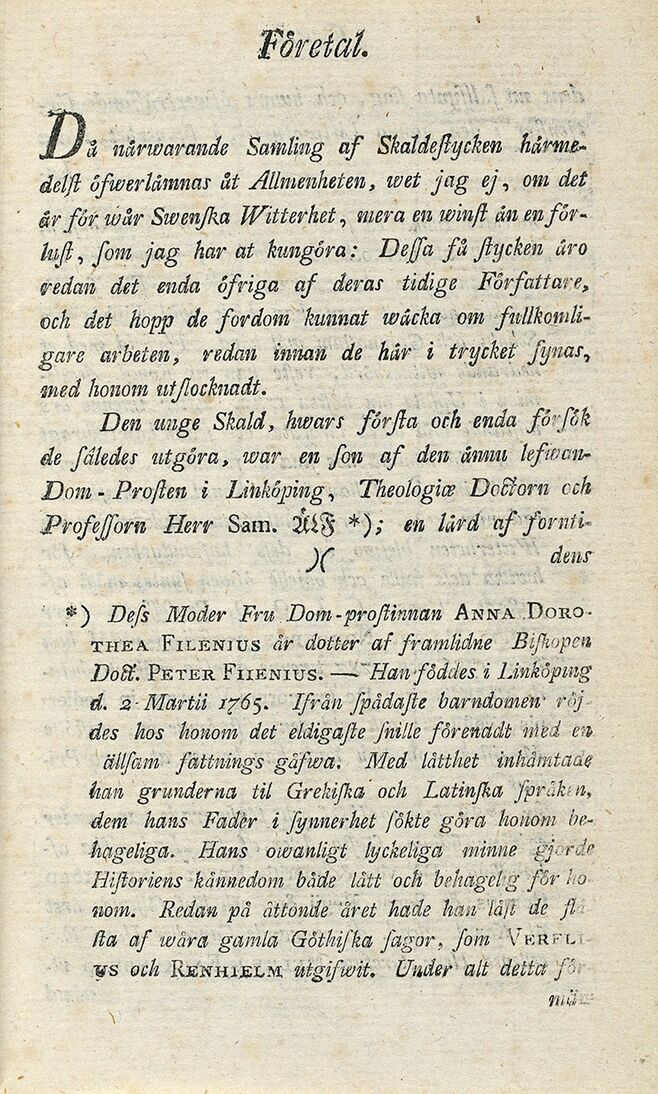 Företal.
Då närwarande Samling af Skaldeſtycken härme-
delſt öfwerlämnas åt Allmenheten, wet jag ej, om det
är för wår Swenſka Witterhet, mera en winſt än en för-
luſt, ſom jag har at kungöra: Deſſa få ſtycken äro
redan det enda öfriga af deras tidige Författare,
och det hopp de fordom kunnat wäcka om fullkomli-
gare arbeten, redan innan de här i trycket ſynas,
med honom utſlocknadt.
Den unge Skald, hwars förſta och enda förſök
de ſåledes utgöra, war en ſon af den ännu lefwan-
Dom-Proſten i Linköping, Theologiæ Doctorn och
Profeſſorn Herr Sam. ÄLF *); en lärd af fornti-
)( dens
*) Deſs Moder Fru Dom-proſtinnan ANNA DORO-
THEA FILENIUS är dotter af framlidne Biſkopen
Doct. PETER FIIENIUS. — Han föddes i Linköping
d. 2 Martii 1765. Ifrån ſpädaſte barndomen röj-
des hos honom det eldigaſte ſnille förenadt med en
ällſam fattnings gåfwa. Med lätthet inhämtade
han grunderna til Grekiſka och Latinſka ſpråken,
dem hans Fader i ſynnerhet ſökte göra honom be-
hageliga. Hans owanligt lyckeliga minne gjorde
Hiſtoriens kännedom både lätt och behagelig för ho-
nom. Redan på åttonde året hade han läſt de flä-
ſta af wåra gamla Göthiſka ſagor, ſom VERELI-
US och RENHIELM utgifwit. Under alt detta för-
män-